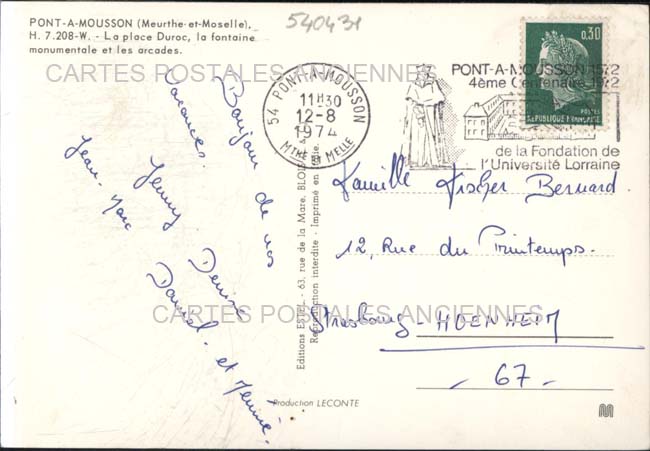 540431
PONT-A-MOUSSON (Meurthe-et-Moselle).
H. 7.208-W. - La place Duroc, la fontaine
monumentale et les arcades.
CARTES POSTALES ANCIENNES
54 PONT-A-MOUSSON
11H30
12-8
1974
MTHE ET MELLE
PONT-A-MOUSSON 1572
4ème Centenaire 1972
de la Fondation de
l'Université Lorraine
0,30
POSTES
REPUBLIQUE FRANÇAISE
Bonjour de nos
vacances.
Jenny Denise
Jean-Marc Daniel et
Editions ESTEL - 63, rue de la Mare, BLOIS
Reproduction interdite - Imprimé en
Famille Fischer Bernard
12, Rue du Printemps.
Strasbourg - HOENHEIM
- 67 -
CARTES POSTALES ANCIENNES
Production LECONTE